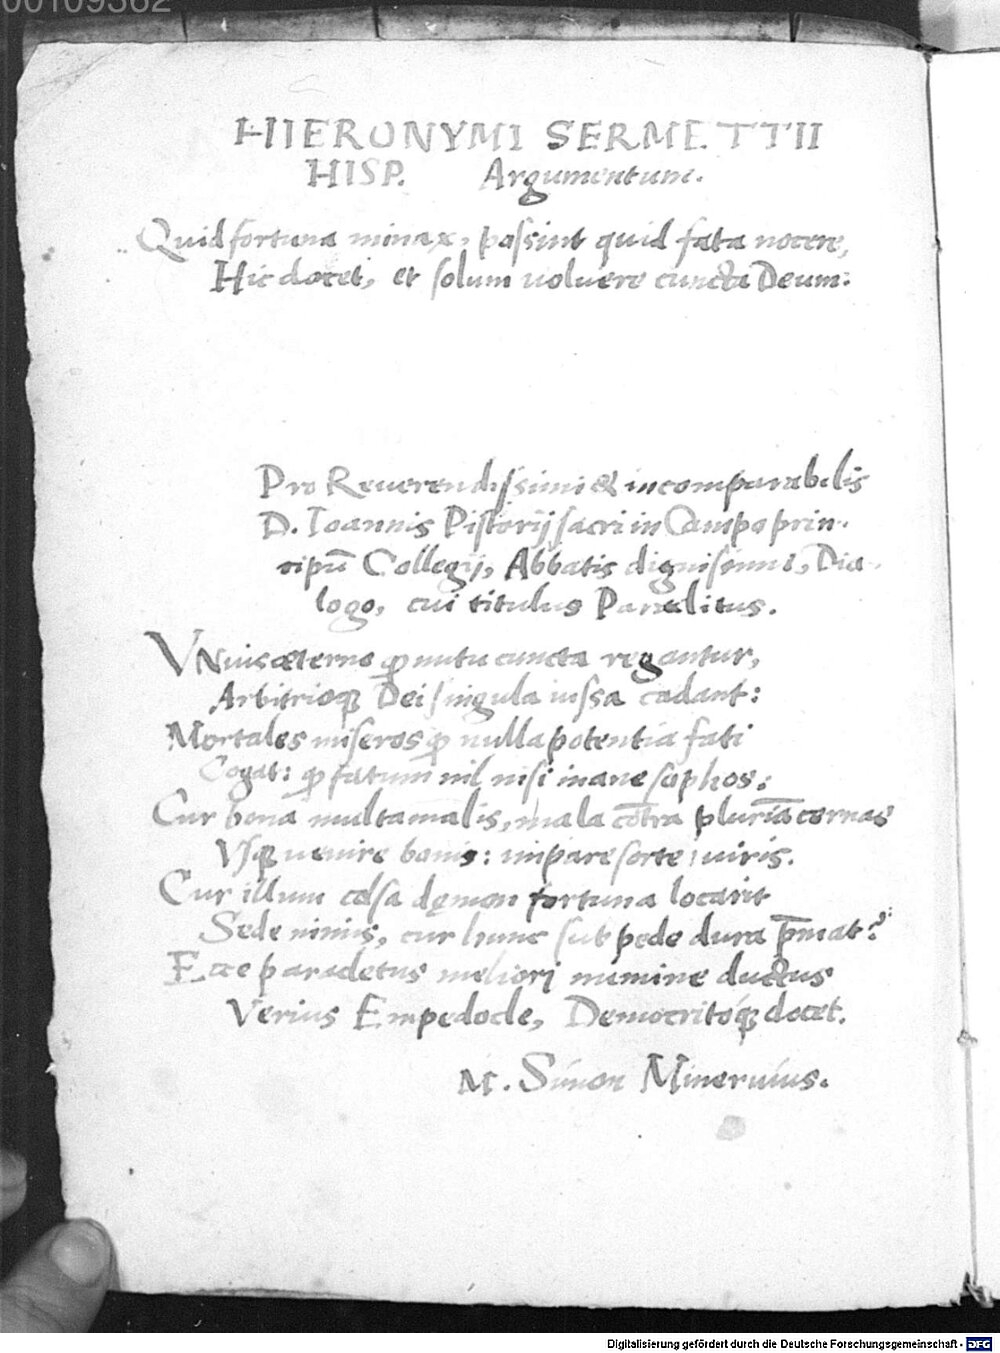 00109362
HIIERONYMI SERMETTII
HISP. Argumentum.
Quid fortuna minax, possint quid fata nocere,
Hic docet, et solum voluere cuncta Deum.
Pro Reuerendissimi & incomparabilis
D. Ioannis Pistorij sacri in Campo prin-
cipū Collegij, Abbatis dignissimi, Dia-
logo, cui titulus Paradetus.
VNuis æterno ꝙ nutu cuncta regantur,
Arbitrioqꝫ Dei singula iussa cadant:
Mortales miseros ꝙ nulla potentia fati
Cogat: ꝙ fatum nil nisi inane sophos:
Cur bona multa malis, mala cōtra pluria cernas
Vsqꝫ uenire bonis: impare sorte, uiris.
Cur illum celsa dęmon fortuna locarit
Sede nimis, cur hunc sub pede dura p̄mat?
Ecce paradetus meliori numine ductus
Verius Empedocle, Democritóqꝫ docet.
M. Simon Mineruius.
Digitalisierung gefördert durch die Deutsche Forschungsgemeinschaft - DFG